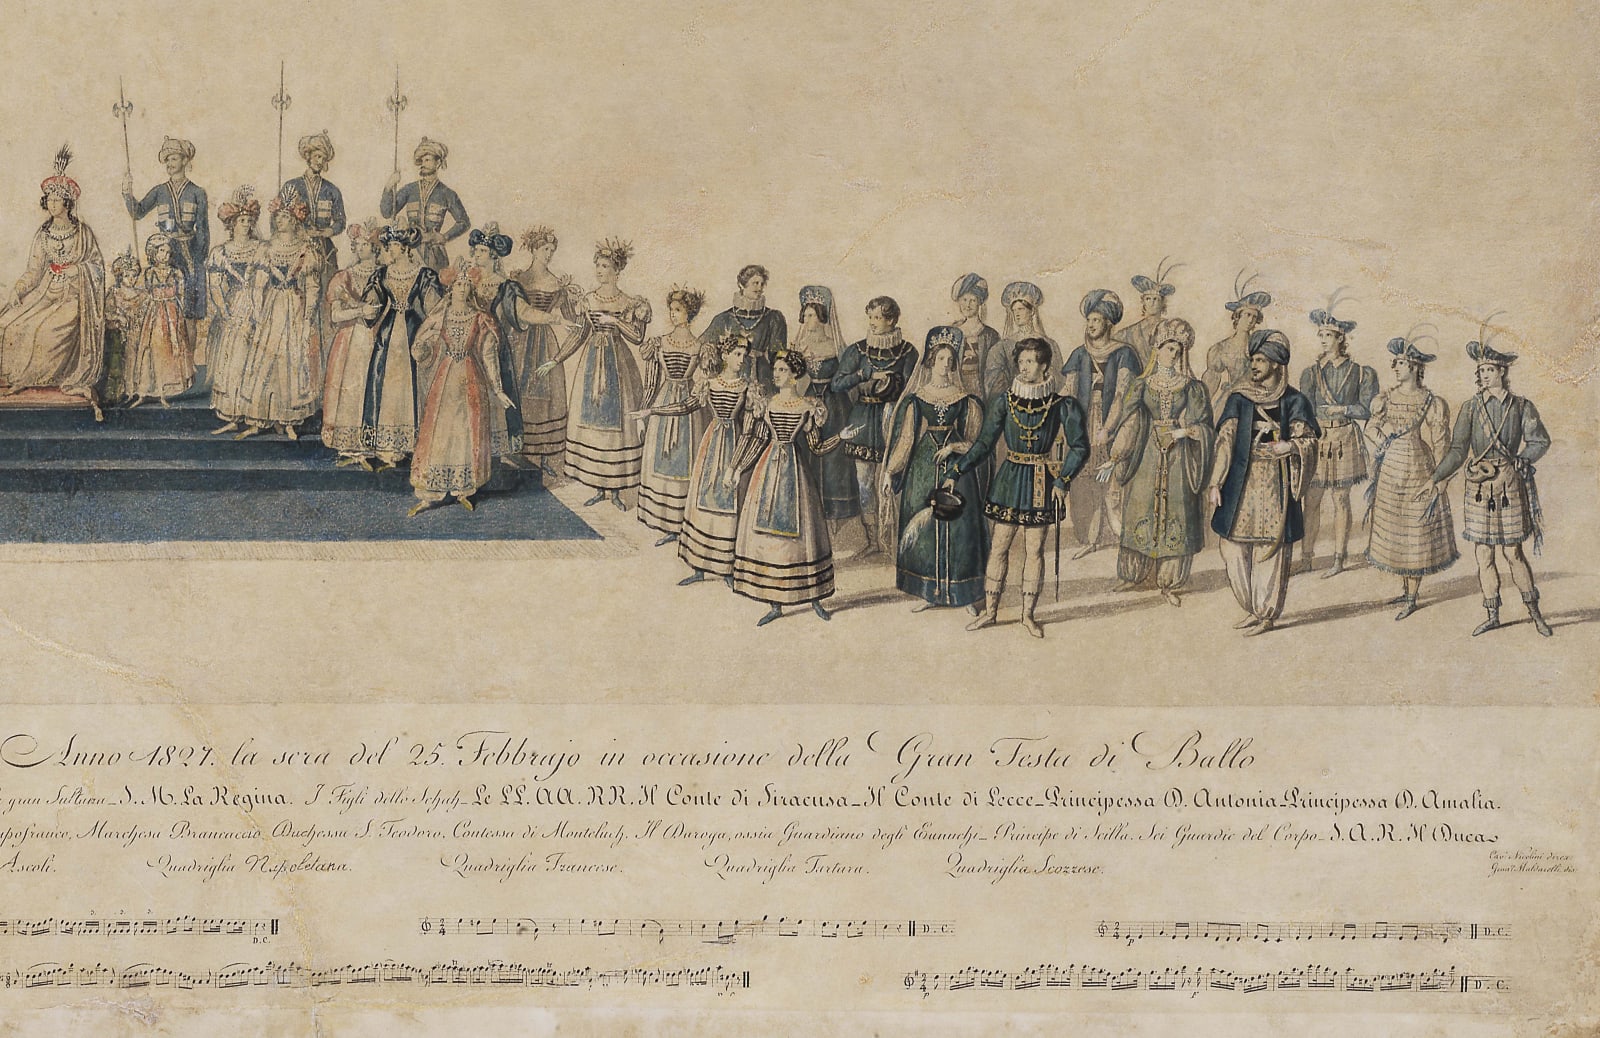 Anno 1827. la sera del 25. Febbrajo in occasione della Gran Festa di Ballo
gran Sultana_S.M. La Regina. I Figli dello Schah_Le LL. AA. RR. Il Conte di Siracusa_Il Conte di Lecce_Principessa D. Antonia_Principessa D. Amalia.
Marchesa Brancaccio, Duchessa S. Teodoro, Contessa di Il Daroga, ossia Guardiano degli Eunuchi_Principe di Scilla. Sei Guardie del Corpo_S.A.R. Il Duca
Ascoli. Quadriglia Napoletana. Quadriglia Francese. Quadriglia Tartara. Quadriglia Scozzese.
Cav.r Nicolini diresse
Genn.o Maldarelli dis.
3. 3. 3.
D.C. D.C. D.C.
D.C.